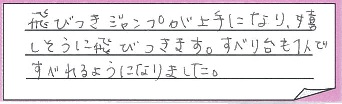 飛びつきジャンプが上手になり、嬉
しそうに飛びつきます。すべり台も1人で
すべれるようになりました。